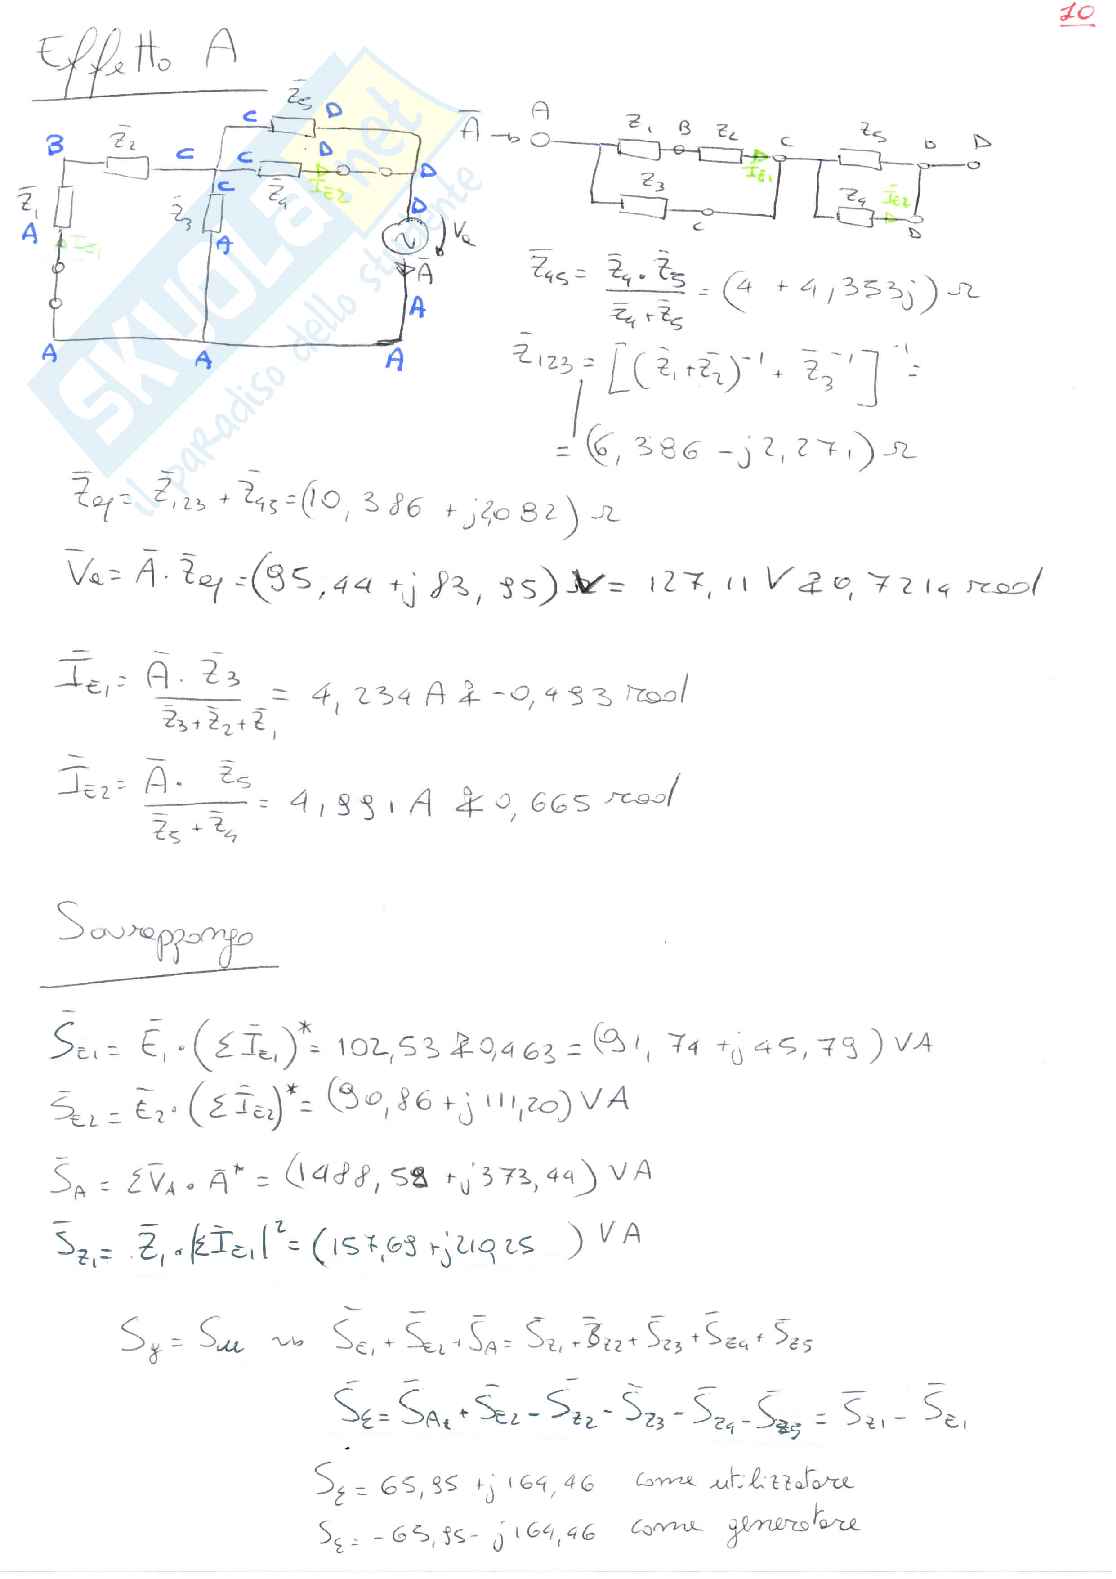 10
Effetto A
Z̄5
C D
A
B Z̄2 C C D D
Z̄4 IE2
Ā → Z1 B Z2 C Z5 D D
IE1
Z̄1 C Z̄3 D Ve
Z3 Z4 IE2
A A Ā C D
A
A A A
Z̄45 = Z̄4 · Z̄5 / Z̄4 + Z̄5 = (4 + 4,353j) Ω
Z̄123 = [(Z̄1+Z̄2)^-1 + Z̄3^-1]^-1 =
= (6,386 - j2,271) Ω
Z̄eq = Z̄123 + Z̄45 = (10,386 + j2,082) Ω
V̄e = Ā · Z̄eq = (95,44 + j 83,95) V = 127,11 V ∡ 0,7214 rad
ĪE1 = Ā · Z̄3 / Z̄3 + Z̄2 + Z̄1 = 4,234 A ∡ -0,493 rad
ĪE2 = Ā · Z̄5 / Z̄5 + Z̄4 = 4,991 A ∡ 0,665 rad
Sovrappongo
S̄E1 = Ē1 · (Σ ĪE1)* = 102,53 ∡ 0,463 = (91,74 + j45,79) VA
S̄E2 = Ē2 · (Σ ĪE2)* = (90,86 + j111,20) VA
S̄A = ΣV̄A · Ā* = (1488,58 + j373,44) VA
S̄Z1 = Z̄1 · |ΣĪE1|² = (157,69 + j210,25) VA
Sg = Su ⇝ S̄E1 + S̄E2 + S̄A = S̄Z1 + S̄Z2 + S̄Z3 + S̄Z4 + S̄Z5
S̄ξ = S̄Az + S̄E2 - S̄Z2 - S̄Z3 - S̄Z4 - S̄Z5 = S̄Z1 - S̄E1
Sξ = 65,95 + j 164,46 come utilizzatore
Sξ = -65,95 - j 164,46 come generatore
SKUOLA.net
il paradiso dello studente